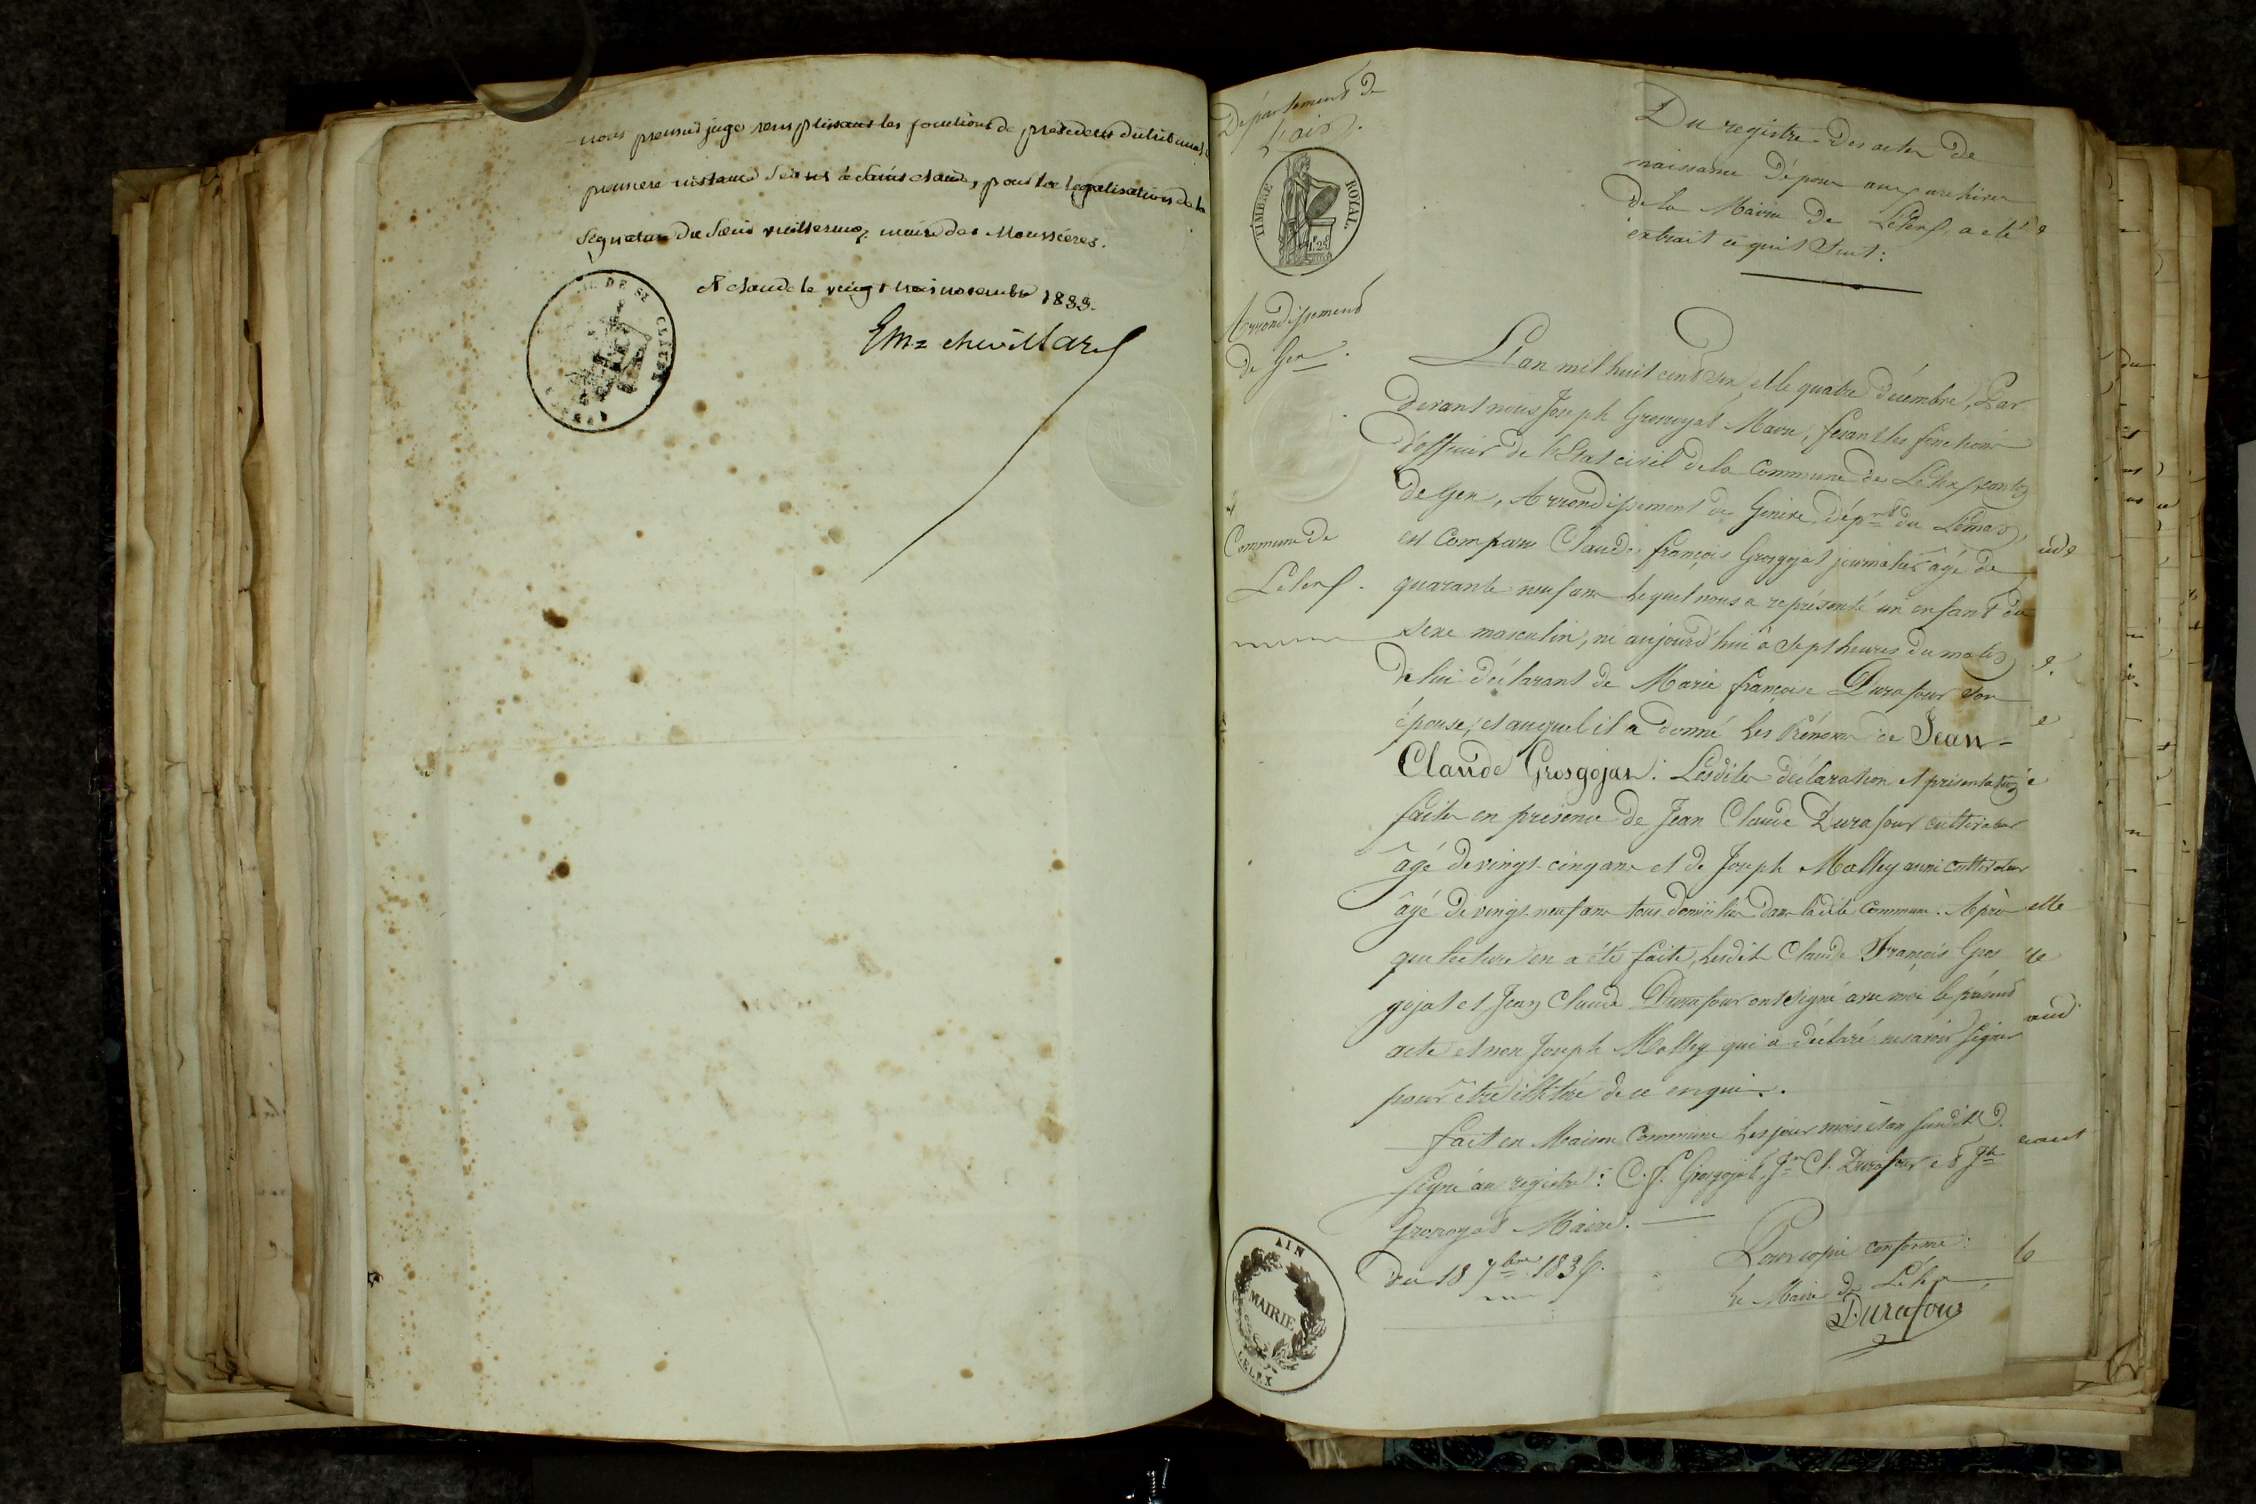 nous premier juge remplissant les fonctions de president du tribunal
premiere instance séant à Saint Claude, pour la legalisation de la
signature du Sieur vuillermoz maire des Moussieres.
St claude le vingt trois novembre 1833.
Em= chevillard
DE ST CLAUDE
Département de
L'ain.
TIMBRE ROYAL
Arrondissement
de Gex.
Commune de
Lélex.
Du registre des actes de
naissance déposé aux archives
de la Mairie de Lélex a été
extrait ce qui suit:
L'an mil huit cent six et le quatre décembre, Par
devant nous Joseph Grosroyat Maire, fesant les fonctions
d'officier de l'Etat civil de la Commune de Lélex, canton
de Gex, Arrondissement de Genève, dépt du Léman,
est comparu Claude françois Grosgojat journalier âgé de
quarante neuf ans lequel nous a représenté un enfant du
sexe masculin, né aujourd'hui à sept heures du matin,
de lui déclarant de Marie françoise Durafour son
épouse, et auquel il a donné les Prénoms de Jean-
Claude Grosgojat. Lesdites déclaration et présentation
faites en présence de Jean Claude Durafour cultivateur
âgé de vingt-cinq ans et de Joseph Molley aussi cultivateur
âgé de vingt-neuf ans tous domiciliés dans ladite commune. Après
que lecture en a été faite, lesdits Claude François Gros
gojat et Jean Claude Durafour ont signé avec moi le présent
acte et non Joseph Molley qui a déclaré ne savoir signer
pour être illitéré de ce enquis.
fait en Maison Commune les jour mois et an susdits.
signé au registre: C. f. Grosgojat, Jn Cl. Durafour et Jh
Grosroyat Maire.
du 18 7bre 183
Pour copie conforme:
le Maire de Lélex,
Durafour
AIN
MAIRIE
LELEX